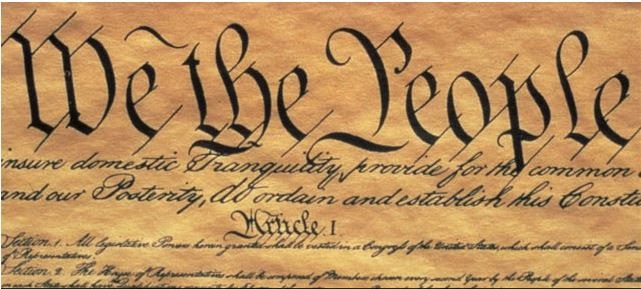 We the People
insure domestic Tranquility, provide for the common
and our Posterity, do ordain and establish this Constit
Article. I.
Section. 1. All legislative Powers herein granted shall be vested in a Congress of the United States, which shall consist of a Sen
of Representatives.
Section. 2. The House of Representatives shall be composed of Members chosen every second Year by the People of the several States